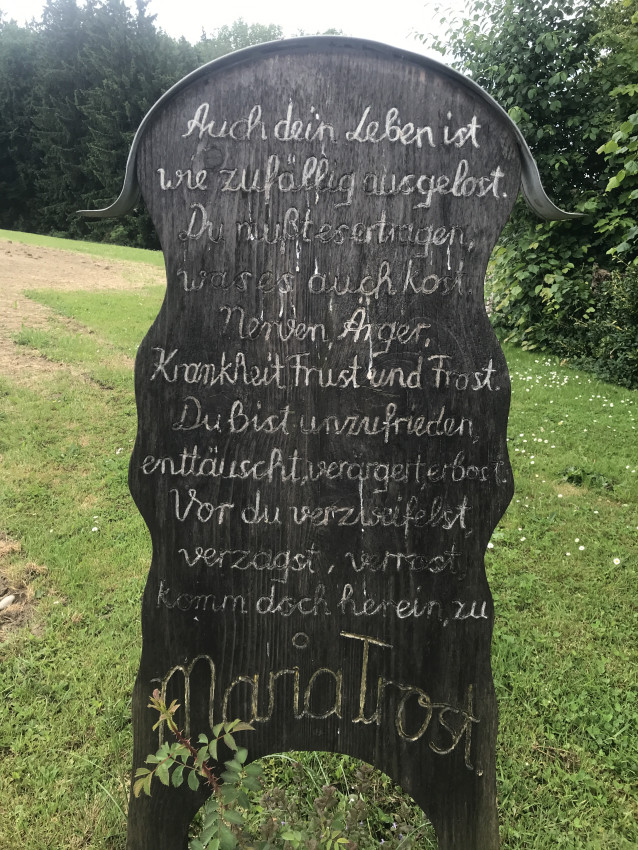 Auch dein Leben ist
wie zufällig ausgelost.
Du mußt es ertragen,
was es auch kost.
Nerven, Ärger,
Krankheit Frust und Frost.
Du Bist unzufrieden,
enttäuscht, verärgert, erbost.
Vor du verzweifelst,
verzagst, verrost,
komm doch herein, zu
Maria Trost.